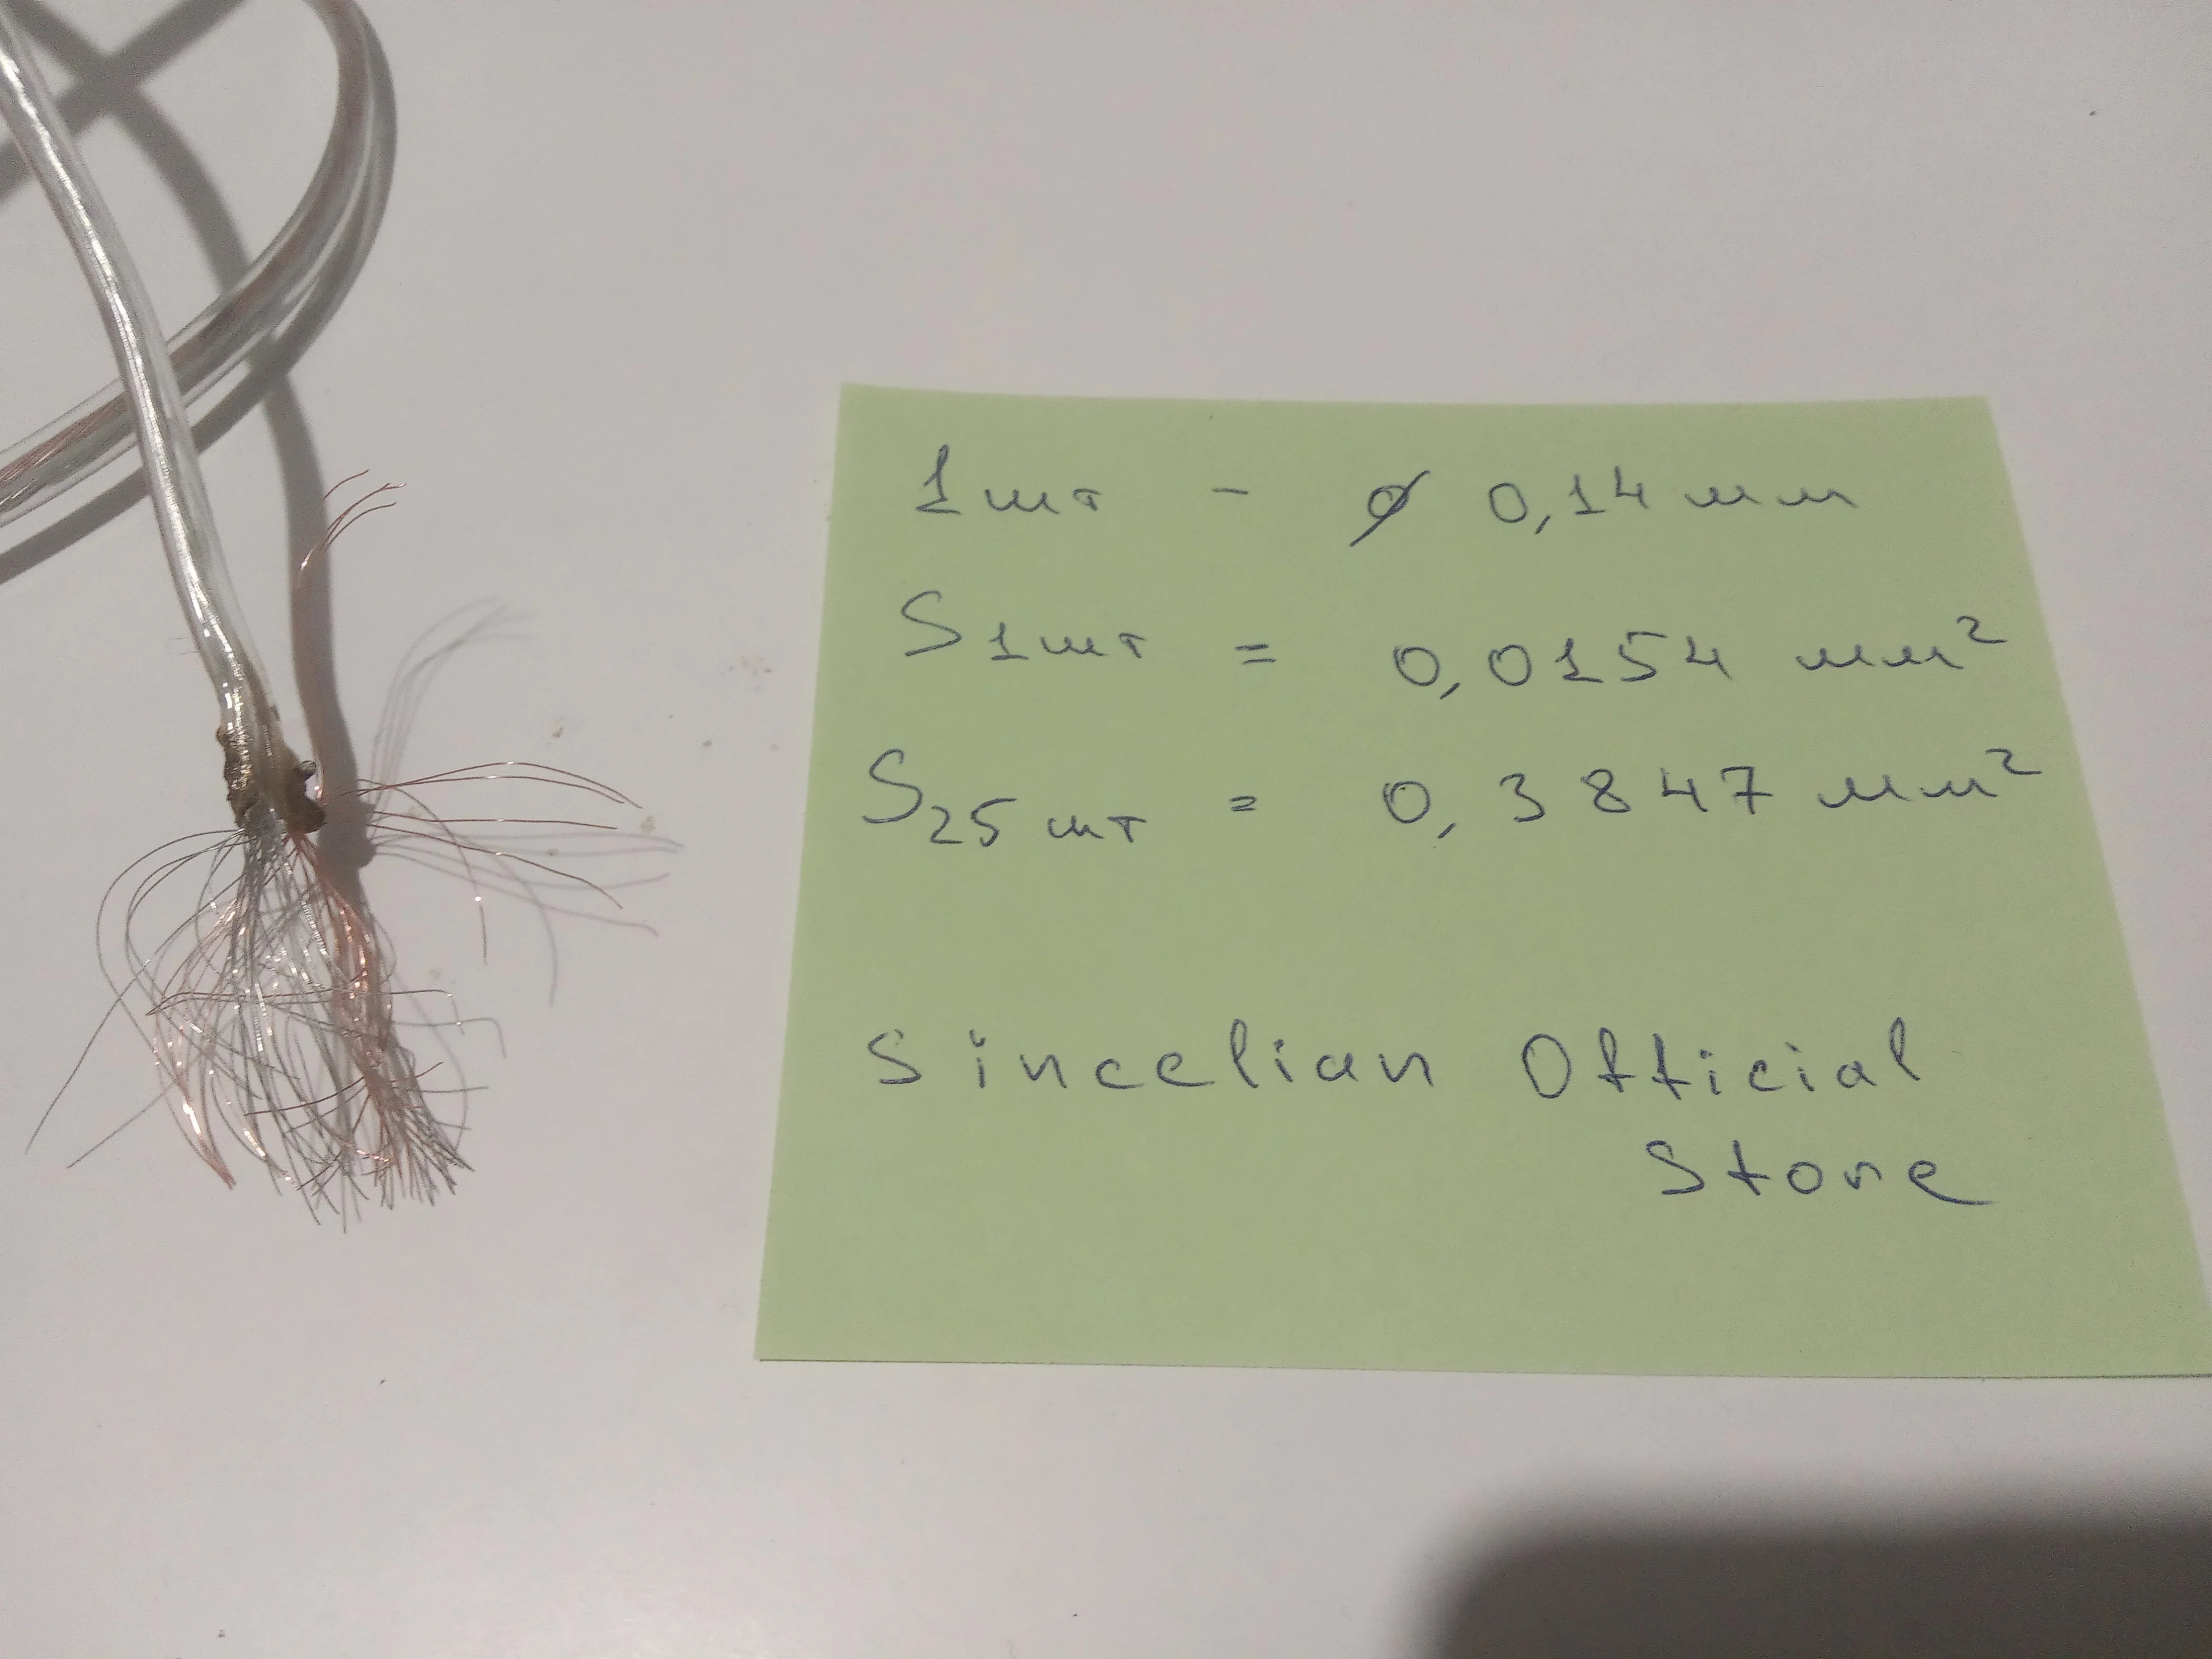 1шт - ⌀ 0,14 мм
S1шт = 0,0154 мм²
S25шт = 0,3847 мм²
Sincelian Official
Store